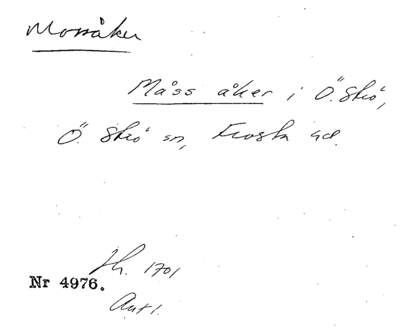 Mossåker
Måss åker i Ö. Strö,
Ö. Strö sn, Frosta hd.
Jb. 1701
Nr 4976.
Ant 1.